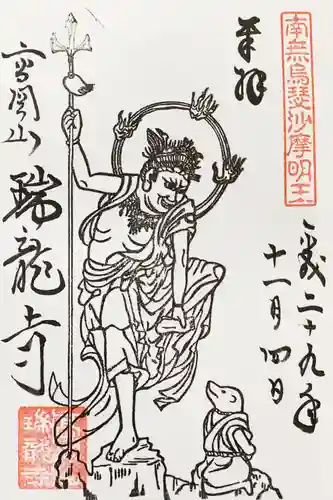 南無烏瑟沙摩明王
奉拝
平成二十九年
十一月四日
高岡山
瑞龍寺